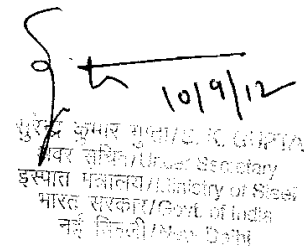 10/9/12
सुरेन्द्र कुमार गुप्ता/S. K. GUPTA
अवर सचिव/Under Secretary
इस्पात मंत्रालय/Ministry of Steel
भारत सरकार/Govt. of India
नई दिल्ली/New Delhi